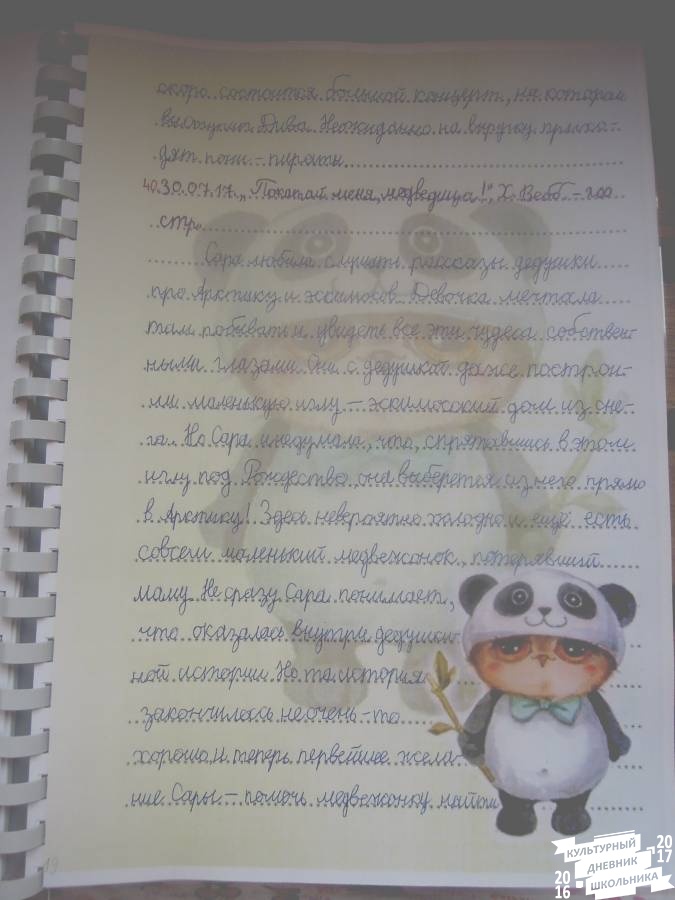 скоро состоится большой концерт, на котором
выступит Дива. Неожиданно на выручку прихо-
дят пони-пираты.
40. 30.07.17. „Покатай меня, медведица!", Х. Вебб. - 200
стр.
Сара любила слушать рассказы дедушки
про Арктику и эскимосов. Девочка мечтала
там побывать и увидеть все эти чудеса собствен-
ными глазами. Они с дедушкой даже построи-
ли маленькую иглу - эскимосский дом из сне-
га. Но Сара и не думала, что, спрятавшись в этом
иглу под Рождество, она выберется из него прямо
в Арктику! Здесь невероятно холодно и ещё есть
совсем маленький медвежонок, потерявший
маму. Не сразу Сара понимает,
что оказалась внутри дедушки-
ной истории. Но та история
закончилась не очень-то
хорошо, и теперь первейшее жела-
ние Сары - помочь медвежонку найти
19
КУЛЬТУРНЫЙ
ДНЕВНИК
ШКОЛЬНИКА
2016
2017